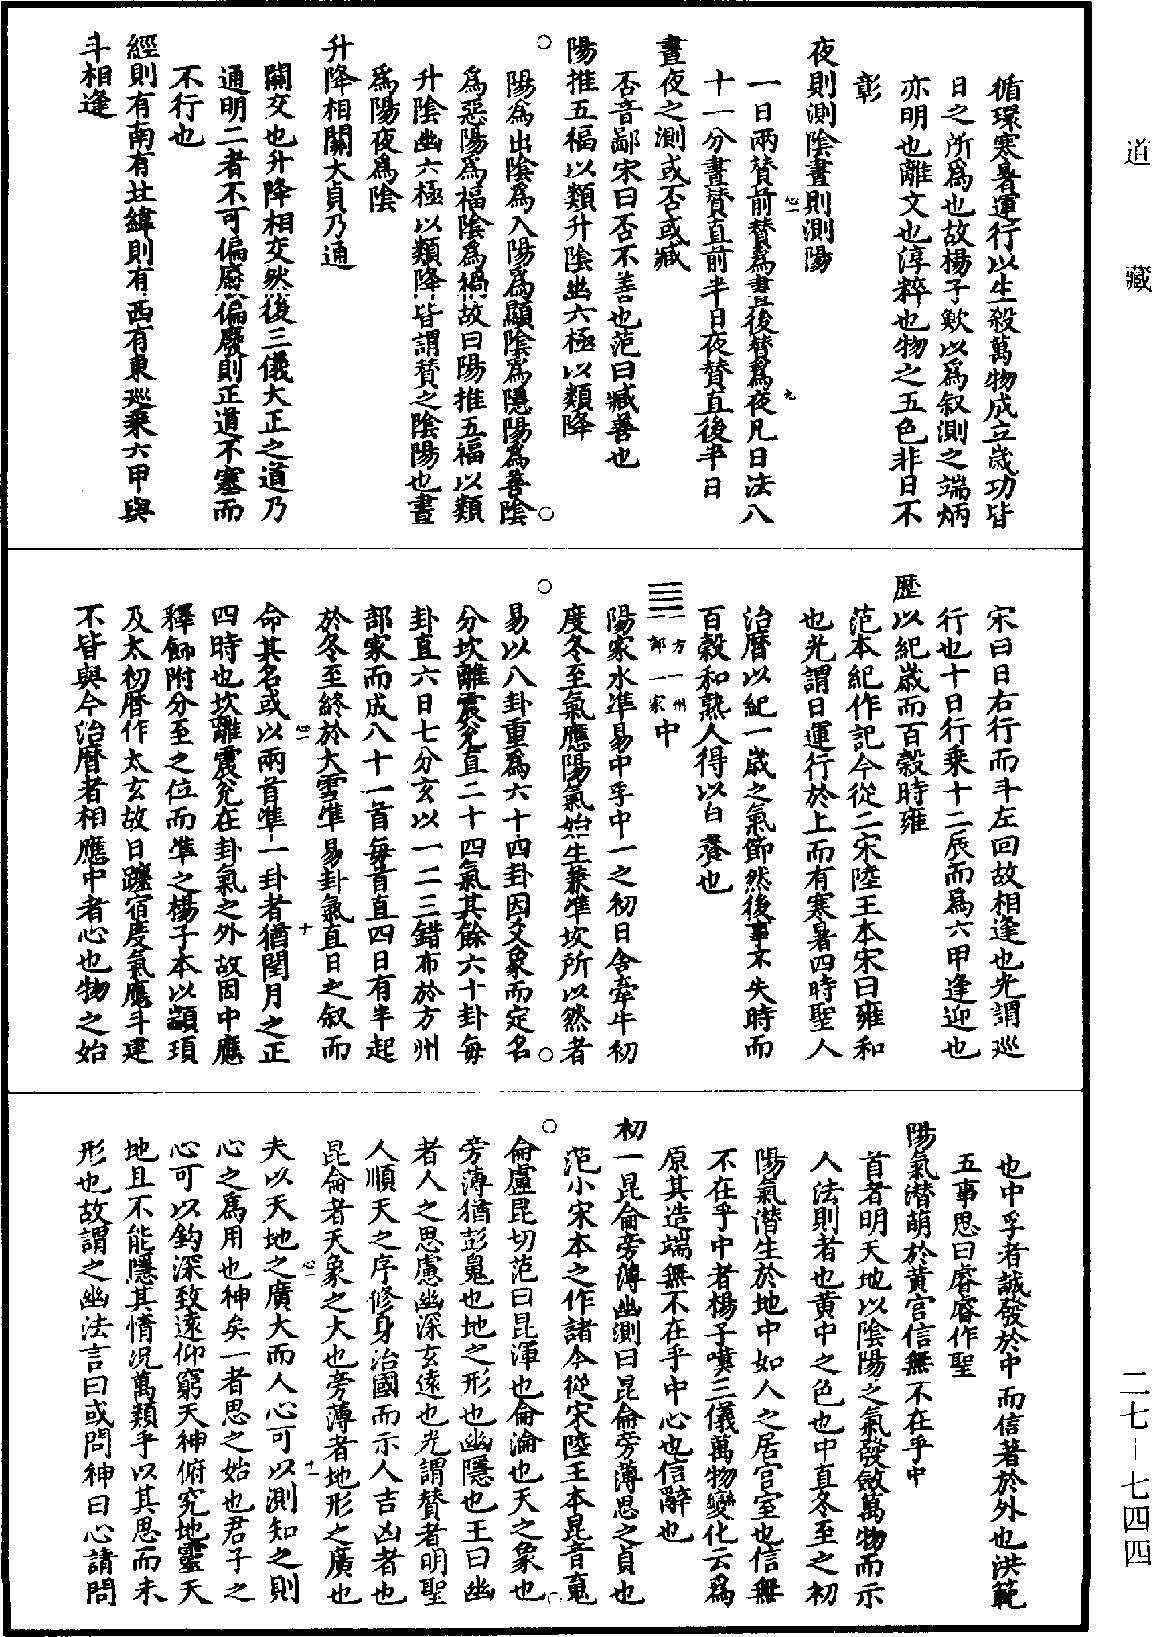 循環寒暑運行以生殺萬物成立歲功皆
日之所爲也故楊子歎以爲叙測之端炳
亦明也離文也淳粹也物之五色非日不
彰
夜則測陰晝則測陽
一日兩贊前贊爲晝後贊爲夜凡日法八
十一分晝贊直前半日夜贊直後半日
晝夜之測或否或臧
否音鄙宋曰否不善也范曰臧善也
陽推五福以類升陰幽六極以類降
陽爲出陰爲入陽爲顯陰爲隱陽爲善陰
爲惡陽爲福陰爲禍故曰陽推五福以類
升陰幽六極以類降皆謂贊之陰陽也晝
爲陽夜爲陰
升降相關大貞乃通
關交也升降相交然後三儀大正之道乃
通明二者不可偏廢偏廢則正道不塞而
不行也
經則有南有北緯則有西有東巡乘六甲與
斗相逢
宋曰日右行而斗左回故相逢也光謂巡
行也十日行乘十二辰而爲六甲逢迎也
歷以紀歲而百穀時雍
范本紀作記今從二宋陸王本宋曰雍和
也光謂日運行於上而有寒暑四時聖人
治曆以紀一歲之氣節然後事不失時而
百穀和熟人得以白饔也
一方一州一部一家中
陽家水準易中孚中一之初日舍牽牛初
度冬至氣應陽氣始生兼準坎所以然者
易以八卦重爲六十四卦因爻象而定名
分坎離震兌直二十四氣其餘六十卦每
卦直六日七分玄以一二三錯布於方州
部家而成八十一首每首直四日有半起
於冬至終於大雪準易卦氣直日之叙而
命其名或以兩首準一卦者猶閏月之正
四時也坎離震兌在卦氣之外故因中應
釋飾附分至之位而準之楊子本以顓頊
及太初曆作太玄故日躔宿度氣應斗建
不皆與今治曆者相應中者心也物之始
也中孚者誠發於中而信著於外也洪範
五事思曰睿睿作聖
陽氣潛萌於黃宮信無不在乎中
首者明天地以陰陽之氣發斂萬物而示
人法則者也黃中之色也中直冬至之初
陽氣潛生於地中如人之居宮室也信無
不在乎中者楊子嘆三儀萬物變化云爲
原其造端無不在乎中心也信辭也
初一昆侖旁薄幽測曰昆侖旁薄思之貞也
范小宋本之作諸今從宋陸王本昆音䰟
侖盧昆切范曰昆渾也侖淪也天之象也
旁薄猶彭䰟也地之形也幽隱也王曰幽
者人之思慮幽深玄遠也光謂贊者明聖
人順天之序修身治國而示人吉凶者也
昆侖者天象之大也旁薄者地形之廣也
夫以天地之廣大而人心可以測知之則
心之爲用也神矣一者思之始也君子之
心可以鈎深致遠仰窮天神俯究地靈天
地且不能隱其情況萬類乎以其思而未
形也故謂之幽法言曰或問神曰心請問
道藏
二七–七四四